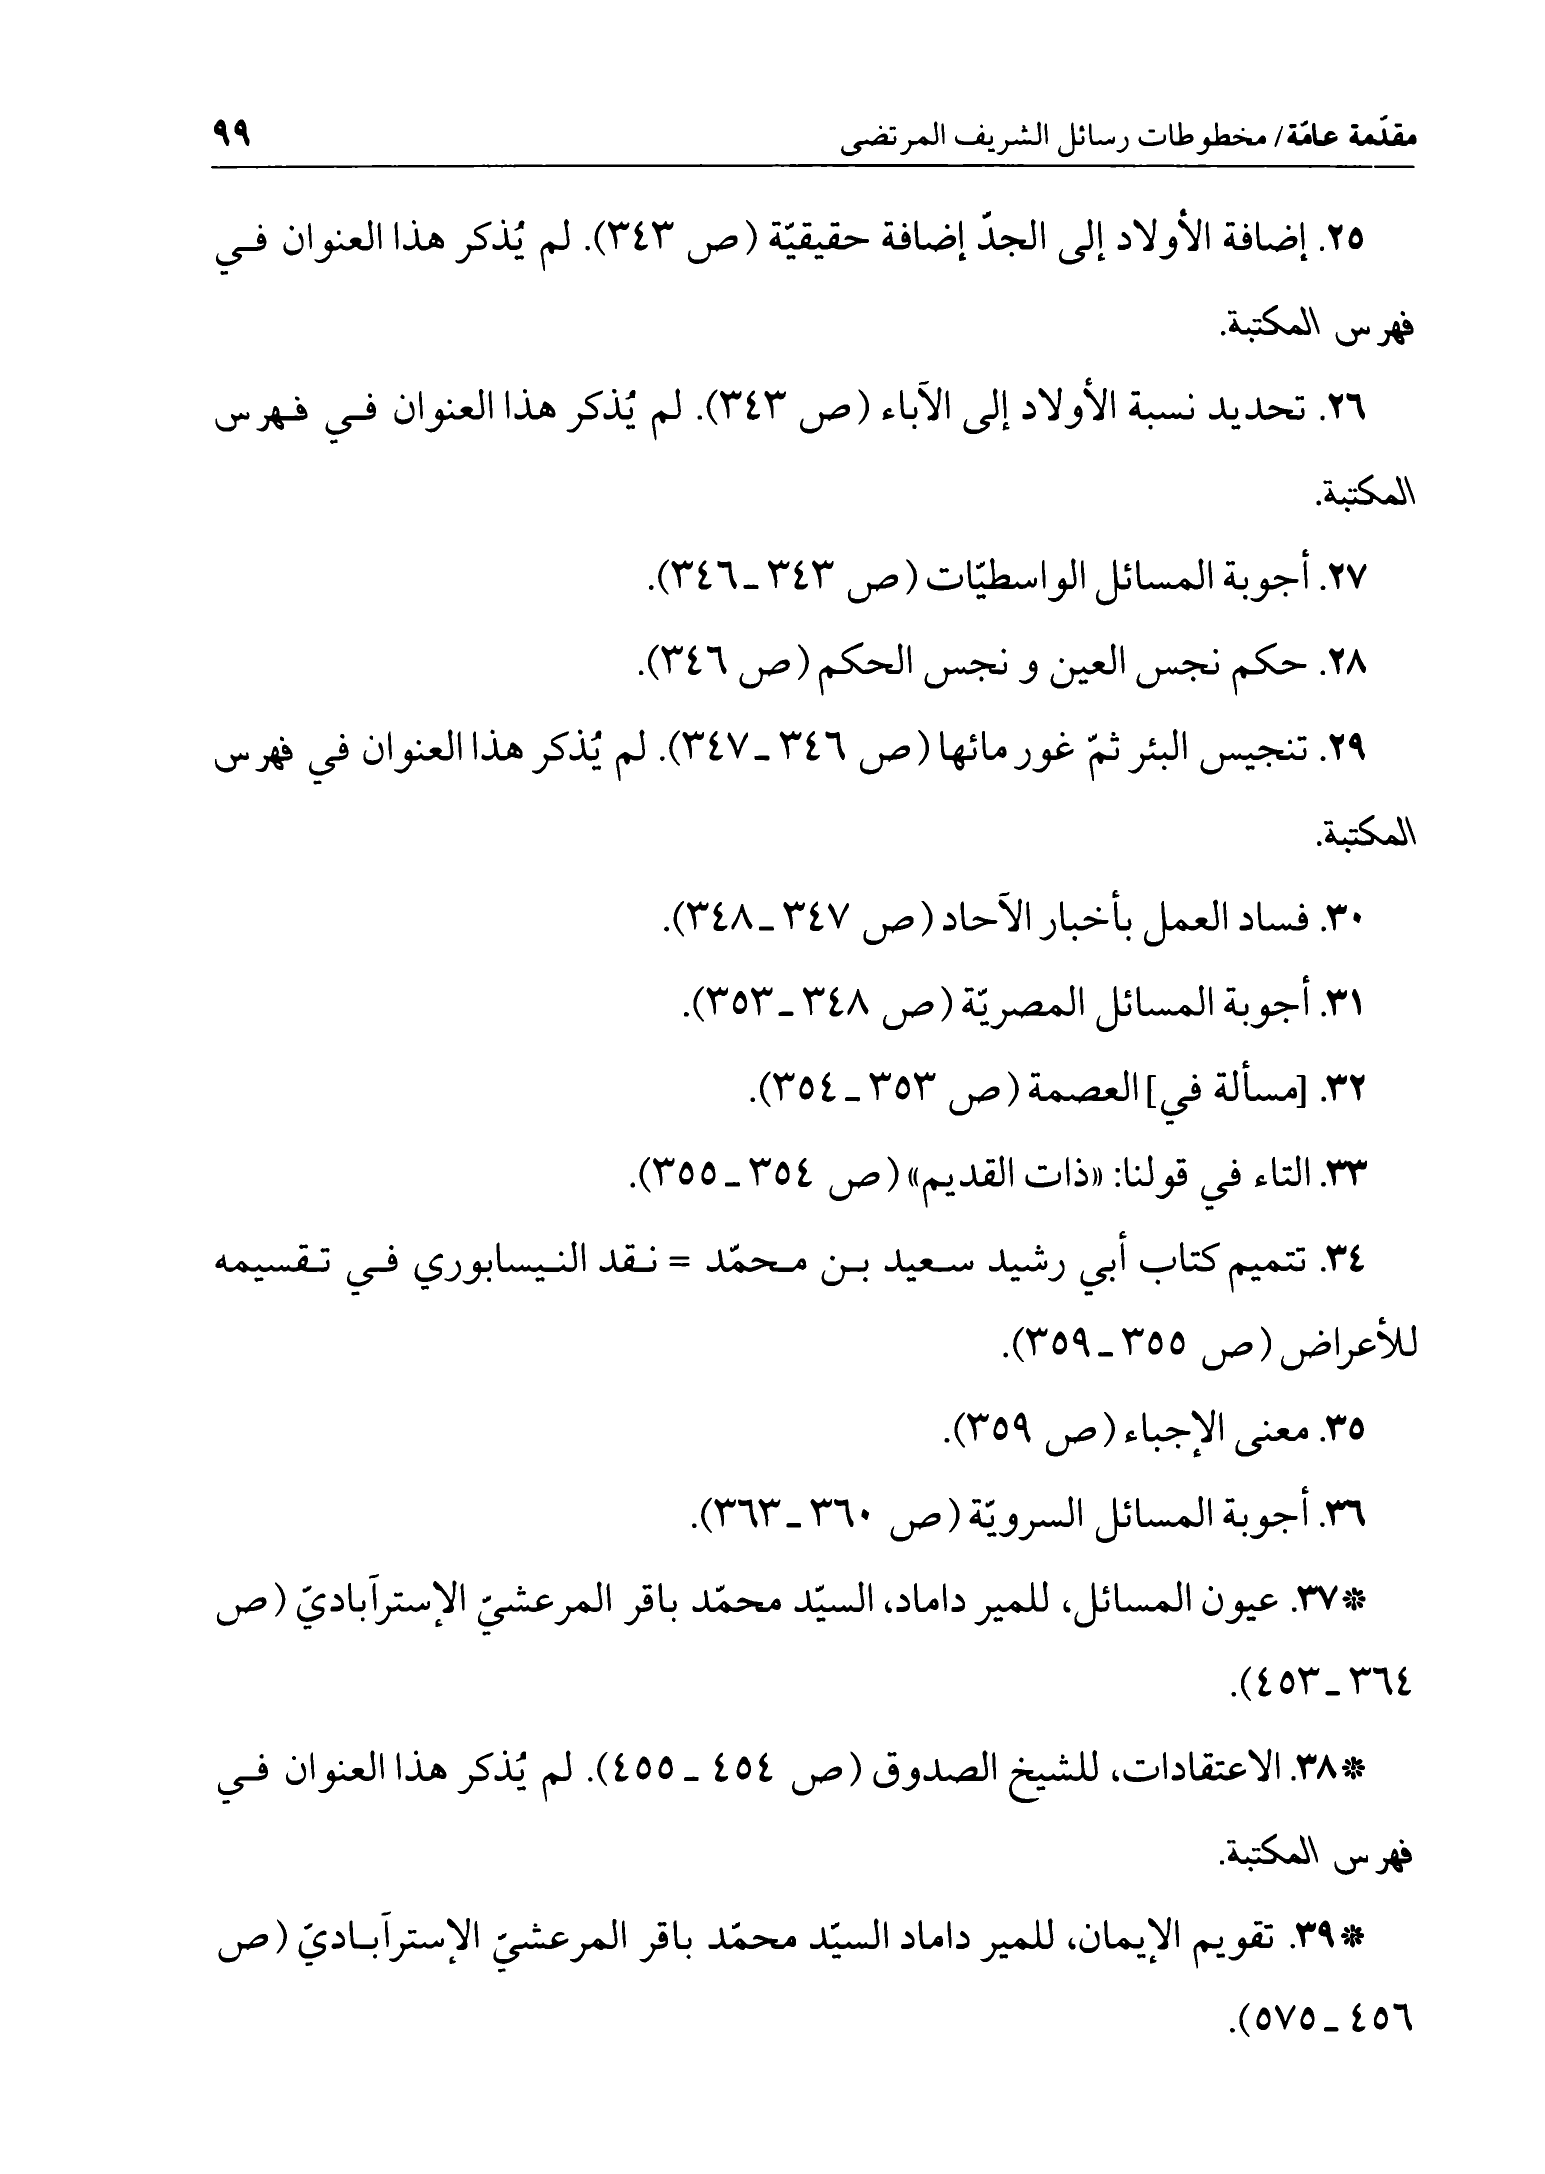 مقدّمة عامّة/ مخطوطات رسائل الشريف المرتضى ٩٩
٢٥. إضافة الأولاد إلى الجدّ إضافة حقيقيّة (ص ٣٤٣). لم يُذكر هذا العنوان في
فهرس المكتبة.
٢٦. تحديد نسبة الأولاد إلى الآباء (ص ٣٤٣). لم يُذكر هذا العنوان في فهرس
المكتبة.
٢٧. أجوبة المسائل الواسطيّات (ص ٣٤٣ ـ ٣٤٦).
٢٨. حكم نجس العين و نجس الحكم (ص ٣٤٦).
٢٩. تنجيس البئر ثمّ غور مائها (ص ٣٤٦ ـ ٣٤٧). لم يُذكر هذا العنوان في فهرس
المكتبة.
٣٠. فساد العمل بأخبار الآحاد (ص ٣٤٧ ـ ٣٤٨).
٣١. أجوبة المسائل المصريّة (ص ٣٤٨ ـ ٣٥٣).
٣٢. [مسألة في] العصمة (ص ٣٥٣ ـ ٣٥٤).
٣٣. التاء في قولنا: «ذات القديم» (ص ٣٥٤ ـ ٣٥٥).
٣٤. تتميم كتاب أبي رشيد سعيد بن محمّد = نقد النيسابوري في تقسيمه
للأعراض (ص ٣٥٥ ـ ٣٥٩).
٣٥. معنى الإجباء (ص ٣٥٩).
٣٦. أجوبة المسائل السرويّة (ص ٣٦٠ ـ ٣٦٣).
*٣٧. عيون المسائل، للمير داماد، السيّد محمّد باقر المرعشيّ الإسترآباديّ (ص
٣٦٤ ـ ٤٥٣).
*٣٨. الاعتقادات، للشيخ الصدوق (ص ٤٥٤ ـ ٤٥٥). لم يُذكر هذا العنوان في
فهرس المكتبة.
*٣٩. تقويم الإيمان، للمير داماد السيّد محمّد باقر المرعشيّ الإسترآباديّ (ص
٤٥٦ ـ ٥٧٥).